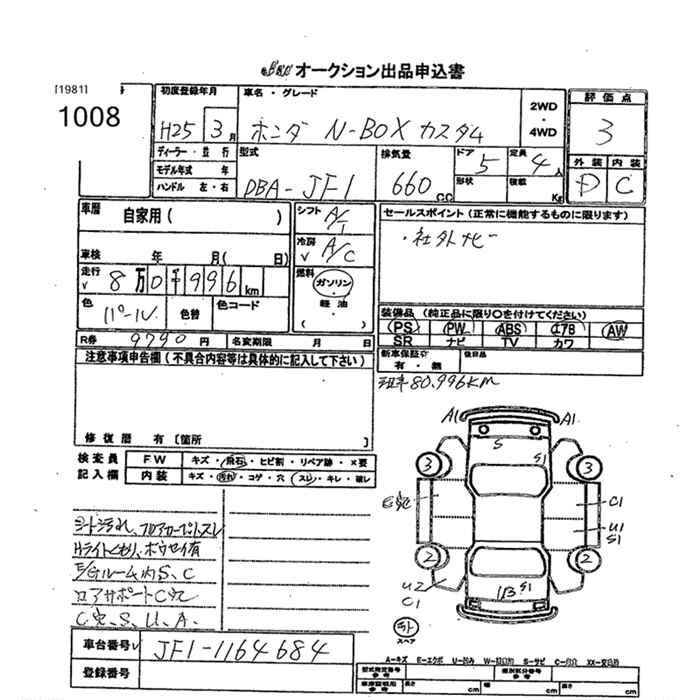 オークション出品申込書
[1981]
1008
初度登録年月
H25 3月
車名・グレード
ホンダ N-BOX カスタム
2WD
・
4WD
評価点
3
外装 内装
D C
ディーラー・並行
モデル年式 年
ハンドル 左・右
型式
DBA-JF1
排気量
660 C.C
ドア 5
形状
定員 4人
積載 Kg
車歴 自家用( )
車検 年 月( 日)
走行 8万0千996km
色 パール 色替 色コード
シフト A/T
冷房 A/C
燃料 ガソリン
軽油
セールスポイント(正常に機能するものに限ります)
・社外ナビ
装備品(純正品に限り○を付けてください)
PS PW ABS エアB AW
SR ナビ TV カワ
R券 9790円 名変期限 月 日
新車保証書 有・無 後日品
注意事項申告欄(不具合内容等は具体的に記入して下さい)
修復歴 有〔箇所 〕
現車80,996KM
検査員
記入欄
FW キズ・飛石・ヒビ割・リペア跡・×要
内装 キズ・汚れ・コゲ・穴・スレ・キレ・破レ
シート汚れ、フロアカーペットスレ
Hライトくもり、ボウセイ有
E/Gルーム内S、C
コアサポートC穴
C穴、S、U、A.
A1 A1
S
S1
3 3
C1
U1
S1
2 2
U2
C1
S1
スペア
車台番号 JF1-1164684
登録番号
A-キズ E-エクボ U-凹み S-サビ
型式指定番号
参考
類別区分番号
参考
長さ cm 幅 cm 高さ cm